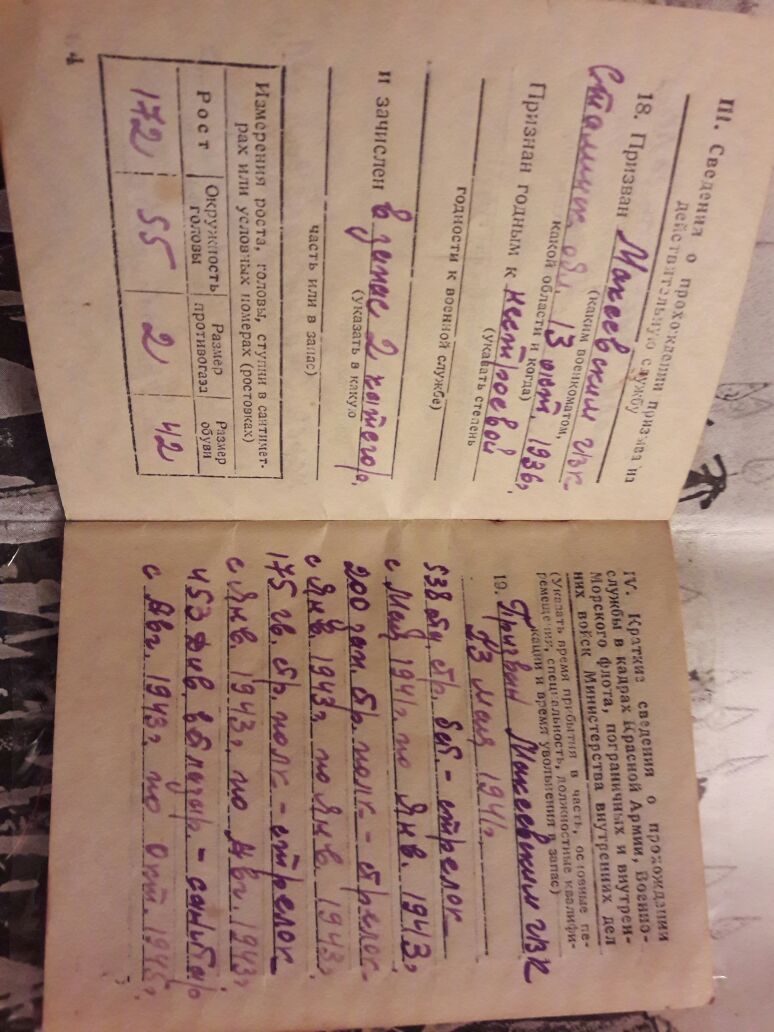 III. Сведения о прохождении призыва на
действительную службу
18. Призван Макеевским гвк
(каким военкоматом,
Сталинск. обл. 13 окт. 1936г.
какой области и когда)
Признан годным к нестроевой
(указать степень
годности к военной службе)
и зачислен в запас 2 категор.
(указать в какую
часть или в запас)
Измерения роста, головы, ступни в сантимет-
рах или условных номерах (ростовках)
Рост Окружность головы Размер противогаза Размер обуви
172 55 2 42
4
IV. Краткие сведения о прохождении
службы в кадрах Красной Армии, Военно-
Морского флота, пограничных и внутрен-
них войск Министерства внутренних дел
(Указать время прибытия в часть, основные пе-
ремещения, специальность, должностные квалифи-
кации и время увольнения в запас)
19. Призван Макеевским гвк
23 мая 1941г.
538 стрелок
с Мая 1941г. по Янв. 1943г.
200 зап. стр. полк - стрелок
с Янв. 1943г. по Янв. 1943г.
175 гв. стр. полк - стрелок
с Янв. 1943г. по Авг. 1943г.
453 див.
с Авг. 1943г. по Окт. 1945г.
5